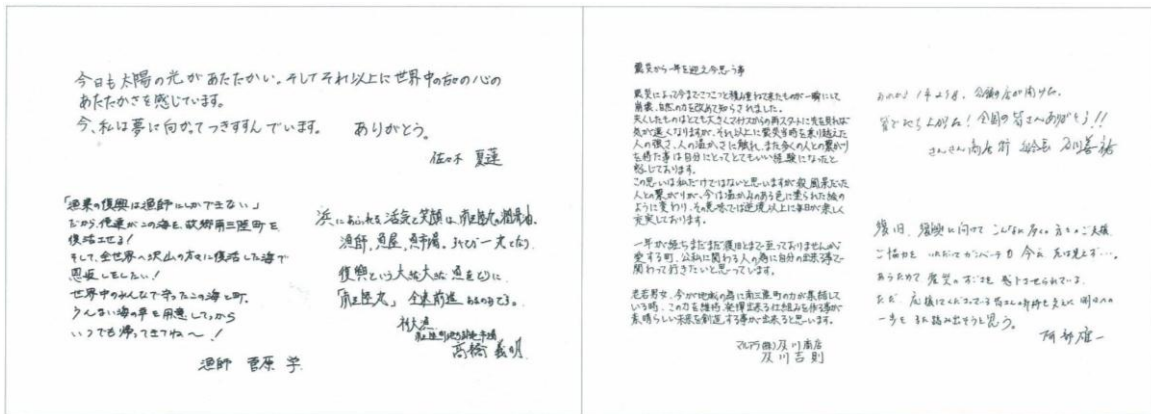 今日も太陽の光があたたかい。そしてそれ以上に世界中の方の心の
あたたかさを感じています。
今、私は夢に向かってつきすすんでいます。 ありがとう。
佐々木 夏蓮
「漁業の復興は漁師にしかできない」
だから俺達がこの海を、故郷南三陸町を
復活させる!
そして、全世界へ沢山の方々に復活した海で
恩返しをしたい!
世界中のみんなで守ったこの海と町。
うんない海の幸を用意してっから
いつでも帰ってきてね〜!
漁師 菅原 学
浜にあふれる活気と笑顔は、南三陸の潤滑油。
漁師、魚屋、魚市場。みんなが一丸となり
復興という大きな大きな魚をとりに
「南三陸丸」全速前進
南三陸町地方卸売市場
高橋 義明
震災から一年を迎え今思う事
震災によって今までこつこつと積み重ねて来たものが一瞬にして
崩壊、自然の力を改めて知らされました。
失くしたものはとても大きくマイナスからの再スタートに先を見れば
気が遠くなりますが、それ以上に震災当時を乗り越えた
人の強さ、人の温かさに触れ、また多くの人との繋がり
を持た事は自分にとってとてもいい経験になったと
感じております。
この思いは私だけではないと思いますが殺風景だった
人との繋がりが、今は温かみのある色に塗られた絵の
ように変わり、その意味では逆境以上に毎日が楽しく
充実しております。
一年が経ちまだまだ復旧とまで至っておりませんが
愛する町、公私に関わる人の為に自分の出来る事で
関わって行きたいと思っています。
老若男女、今が地域の為に南三陸町の力が集結して
いる時、この力を維持、発揮出来る仕組みを作る事が
素晴らしい未来を創造する事が出来ると思います。
マルアラ(株)及川商店
及川吉則
あれから1年よりを、念願の店が開けた。
皆でたち上がれ!全国の皆さんありがとう!!
さんさん商店街 総会長 及川善祐
復旧、復興に向けてこんなに多くの方々のご支援
ご協力をいただいてガンバッテも今だ先は見えず…。
あらためて震災のすごさを感じさせられている。
ただ、応援してくださっている皆さんの期待を支えに明日への
一歩をまた踏み出そうと思う。
阿部雄一